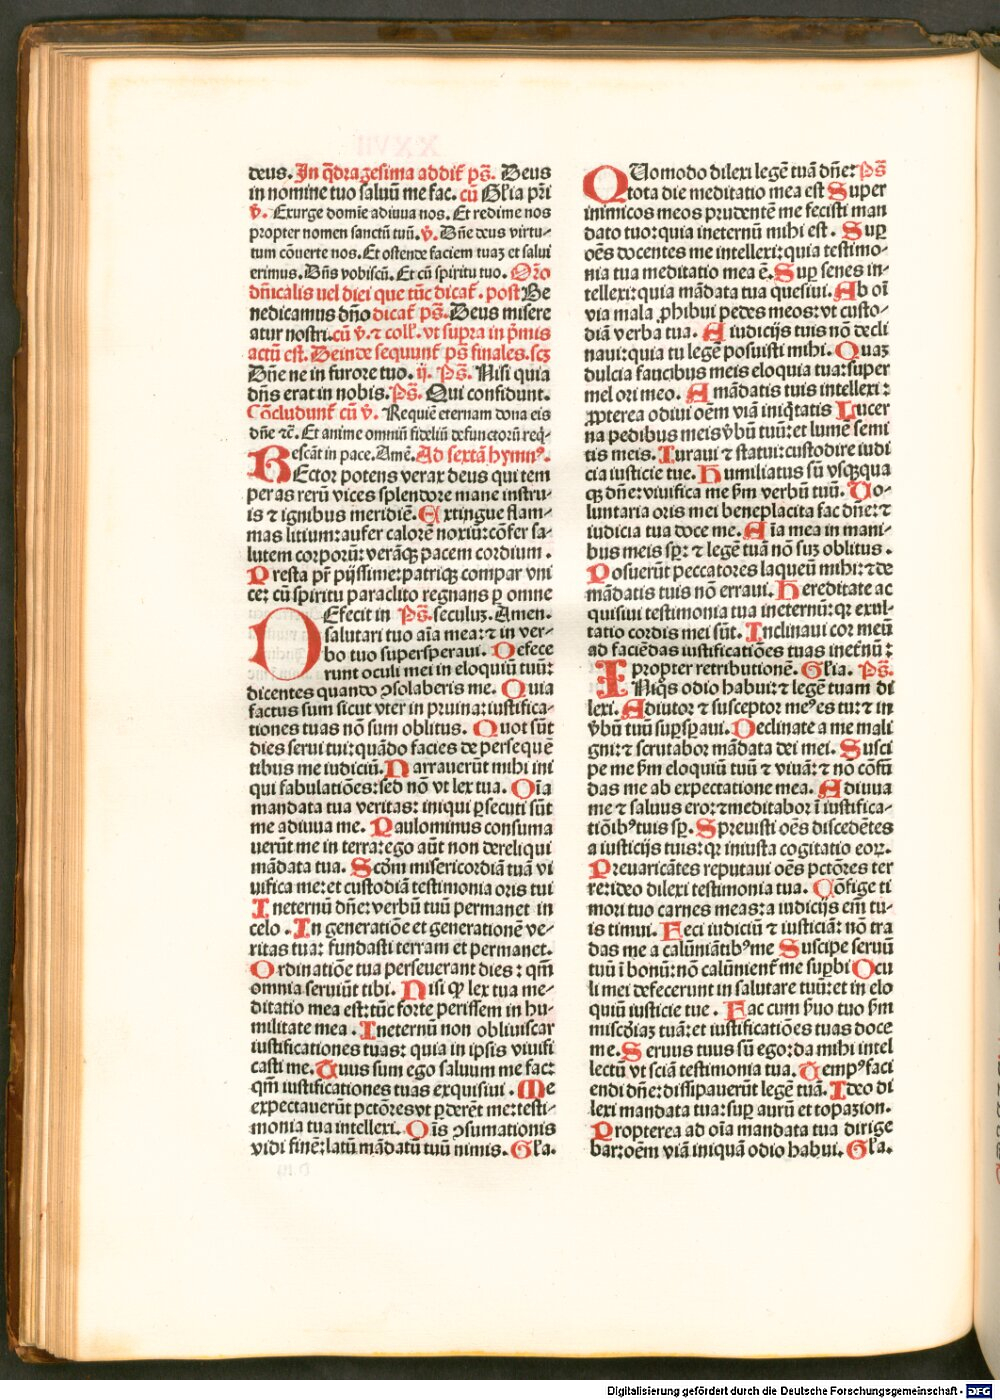 deus. In q̃dragesima addit̃ ps̃. Deus
in nomine tuo saluũ me fac. cũ Gl̃ia pr̃i
v̊. Exurge domĩe adiuua nos. Et redime nos
propter nomen sanctũ tuũ. v̊. Dñe deus virtu-
tum cõuerte nos. Et ostende faciem tuaꝫ et salui
erimus. Dñs vobiscũ. Et cũ spiritu tuo. Orõ
dñicalis uel diei que tũc dicat̃. post Be
nedicamus dño dicat̃ ps̃. Deus misere
atur nostri. cũ v̊. ⁊ coll̃. vt supra in p̃mis
actũ est. Deinde sequunt̃ ps̃ finales. scꝫ
Dñe ne in furore tuo. ij. Ps̃. Nisi quia
dñs erat in nobis. Ps̃. Qui confidunt.
Cõcludunt̃ cũ v̊. Requiẽ eternam dona eis
dñe ⁊c̃. Et anime omniũ fideliũ defunctorũ req̃-
escãt in pace. Amẽ. Ad sextã hymnꝰ.
REctor potens verax deus qui tem
peras rerũ vices splendore mane instru-
is ⁊ ignibus meridiẽ. Extingue flam-
mas litium: aufer calorẽ noxiũ: cõfer sa-
lutem corporũ: verãqꝫ pacem cordium.
Presta pr̃ pijssime: patriqꝫ compar vni
ce: cũ spiritu paraclito regnans ꝑ omne
DEfecit in Ps̃. seculuꝫ. Amen.
salutari tuo aĩa mea: ⁊ in ver-
bo tuo supersperaui. Defece
runt oculi mei in eloquiũ tuũ:
dicentes quando ↄsolaberis me. Quia
factus sum sicut vter in pruina: iustifica-
tiones tuas nõ sum oblitus. Quot sũt
dies serui tui: quãdo facies de persequẽ
tibus me iudiciũ. Narrauerũt mihi ini
qui fabulatiões: sed nõ vt lex tua. Oĩa
mandata tua veritas: iniqui ꝑsecuti sũt
me adiuua me. Paulominus consuma
uerũt me in terra: ego aũt non dereliqui
mãdata tua. Scd̃m misericordiã tuã vi
uifica me: et custodiã testimonia oris tui
Ineternũ dñe: verbũ tuũ permanet in
celo. In generatiõe et generationẽ ve-
ritas tua: fundasti terram et permanet.
Ordinatiõe tua perseuerant dies: qm̃
omnia seruiũt tibi. Nisi ꝙ lex tua me-
ditatio mea est: tũc forte perissem in hu-
militate mea. Ineternũ non obliuiscar
iustificationes tuas: quia in ipsis viuifi
casti me. Tuus sum ego saluum me fac:
qm̃ iustificationes tuas exquisiui. Me
expectauerũt pctõres vt ꝑderẽt me: testi-
monia tua intellexi. Oĩs ↄsumationis
vidi finẽ: latũ mãdatũ tuũ nimis. Gl̃a.
QUomodo dilexi legẽ tuã dñe: Ps̃
tota die meditatio mea est Super
inimicos meos prudentẽ me fecisti man
dato tuo: quia ineternũ mihi est. Suꝑ
oẽs docentes me intellexi: quia testimo-
nia tua meditatio mea ẽ. Suꝑ senes in-
tellexi: quia mãdata tua quesiui. Ab oĩ
via mala ꝓhibui pedes meos: vt custo-
diã verba tua. A iudicijs tuis nõ decli
naui: quia tu legẽ posuisti mihi. Quaꝫ
dulcia faucibus meis eloquia tua: super
mel ori meo. A mãdatis tuis intellexi:
ꝓpterea odiui oẽm viã iniq̃tatis Lucer
na pedibus meis v̊bũ tuũ: et lumẽ semi
tis meis. Iuraui ⁊ statui: custodire iudi
cia iusticie tue. Humiliatus sũ vsqꝫqua
qꝫ dñe: viuifica me ẜm verbũ tuũ. Uo-
luntaria oris mei beneplacita fac dñe: ⁊
iudicia tua doce me. Aĩa mea in mani-
bus meis sꝑ: ⁊ legẽ tuã nõ suꝫ oblitus.
Posuerũt peccatores laqueũ mihi: ⁊ de
mãdatis tuis nõ erraui. Hereditate ac
quisiui testimonia tua ineternũ: qꝛ exul-
tatio cordis mei sũt. Inclinaui cor meũ
ad faciẽdas iustificatiões tuas inet̃nũ:
propter retributionẽ. Gl̃ia. Ps̃.
INiq̃s odio habui: ⁊ legẽ tuam di
lexi. Adiutor ⁊ susceptor meꝰ es tu: ⁊ in
v̊bũ tuũ suꝑsꝑaui. Declinate a me mali
gni: ⁊ scrutabor mãdata dei mei. Susci
pe me ẜm eloquiũ tuũ ⁊ viuã: ⁊ nõ cõfũ
das me ab expectatione mea. Adiuua
me ⁊ saluus ero: ⁊ meditabor ĩ iustifica-
tiõibꝰ tuis sꝑ. Spreuisti oẽs discedẽtes
a iusticijs tuis: qꝛ iniusta cogitatio eoꝝ.
Preuaricãtes reputaui oẽs pctõres ter
re: ideo dilexi testimonia tua. Cõfige ti
mori tuo carnes meas: a iudicijs em̃ tu-
is timui. Feci iudiciũ ⁊ iusticiã: nõ tra
das me a calũniãtibꝰ me Suscipe seruũ
tuũ ĩ bonũ: nõ calũnient̃ me suꝑbi Ocu
li mei defecerunt in salutare tuũ: et in elo
quiũ iusticie tue. Fac cum ẜuo tuo ẜm
miscd̃iaꝫ tuã: et iustificatiões tuas doce
me. Seruus tuus sũ ego: da mihi intel
lectũ vt sciã testimonia tua. Tempꝰ faci
endi dñe: dissipauerũt legẽ tuã. Ideo di
lexi mandata tua: suꝑ aurũ et topazion.
Propterea ad oĩa mandata tua dirige
bar: oẽm viã iniquã odio habui. Gl̃a.
Digitalisierung gefördert durch die Deutsche Forschungsgemeinschaft - DFG